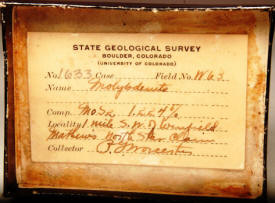 STATE GEOLOGICAL SURVEY
BOULDER, COLORADO
(UNIVERSITY OF COLORADO)
No. 1633 Case Field No. W63
Name Molybdenite
Comp. MoS2
Locality 1 mile S.W. of Winfield
North Star Claim
Collector P.G. Worcester